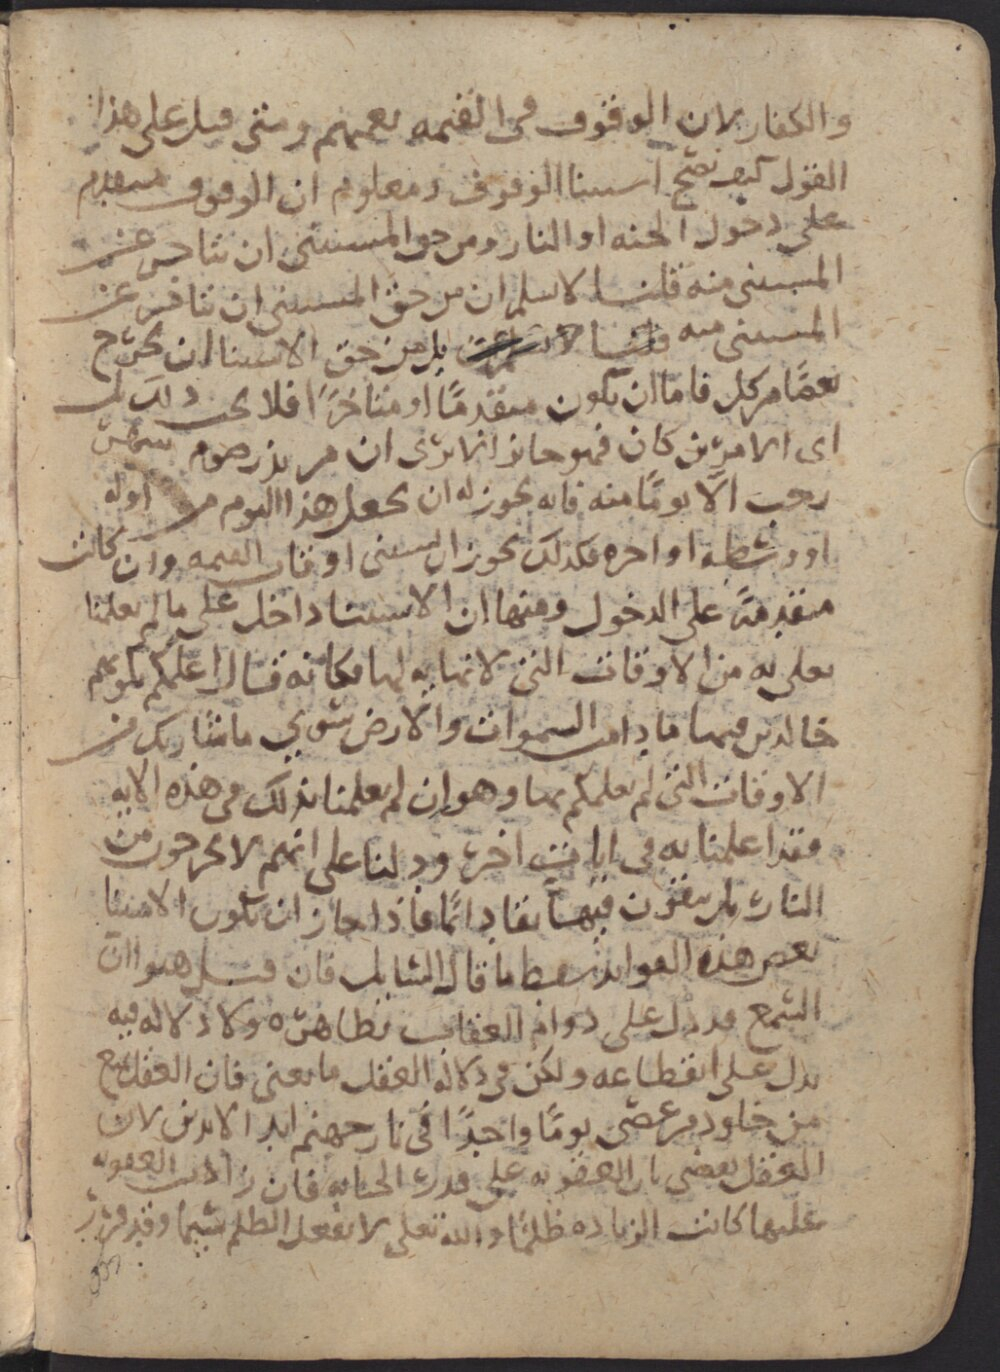 والكفار لان الوقوف في القيمه يعمهم ومتى قيل على هذا
القول كيف يصح استثنا الوقوف ومعلوم ان الوقوف متقدم
على دخول الجنه او النار ومن حق المستثنى ان يتاخر عن
المستثنى منه قلنا لا نسلم ان من حق المستثنى ان يتاخر عن
المستثنى منه قلنا بل من حق الاستثنا ان يخرج
بعضًا من كل فاما ان يكون متقدمًا او متاخرًا فلا ذلك بل
اى الامرين كان فهو جايز الا ترى ان من نذر صوم شهر
رجب الا يومًا منه فانه يجوز له ان يجعل هذا اليوم من اوله
او وسطه او اخره فكذلك يجوز ان يستثنى اوقات القيمه وان كانت
متقدمة على الدخول ومنها ان الاستثنا داخل على ما لم يعلمنا
تعلى به من الاوقات التى لا نهايه لها فكانه قال اعلمكم بكونهم
خالدين فيها ما دامت السموات والارض سوى ما شا ربك من
الاوقات التى لم يعلمكم بها وهو ان لم يعلمنا بذلك فى هذه الايه
فقد اعلمنا به فى ايات اخر ودلنا على انهم لا يخرجون من
النار بل يبقون فيها بقا دائما فاذا جاز ان يكون الاستثنا
بعض هذه الفوايد سقط ما قال السايل فان قيل هبوا ان
السمع قد دل على دوام العقاب بظاهره ولا دلاله فيه
تدل على انقطاعه ولكن فى دلالة العقل ما يغنى فان العقل يمنع
من خلود من عصى يومًا واحدًا فى نار جهنم ابد الابدين لان
العقل يقضى بان العقوبه على قدر الجنايه فان زادت العقوبه
عليها كانت الزياده ظلمًا والله تعلى لا يفعل الظلم شيئا وقد